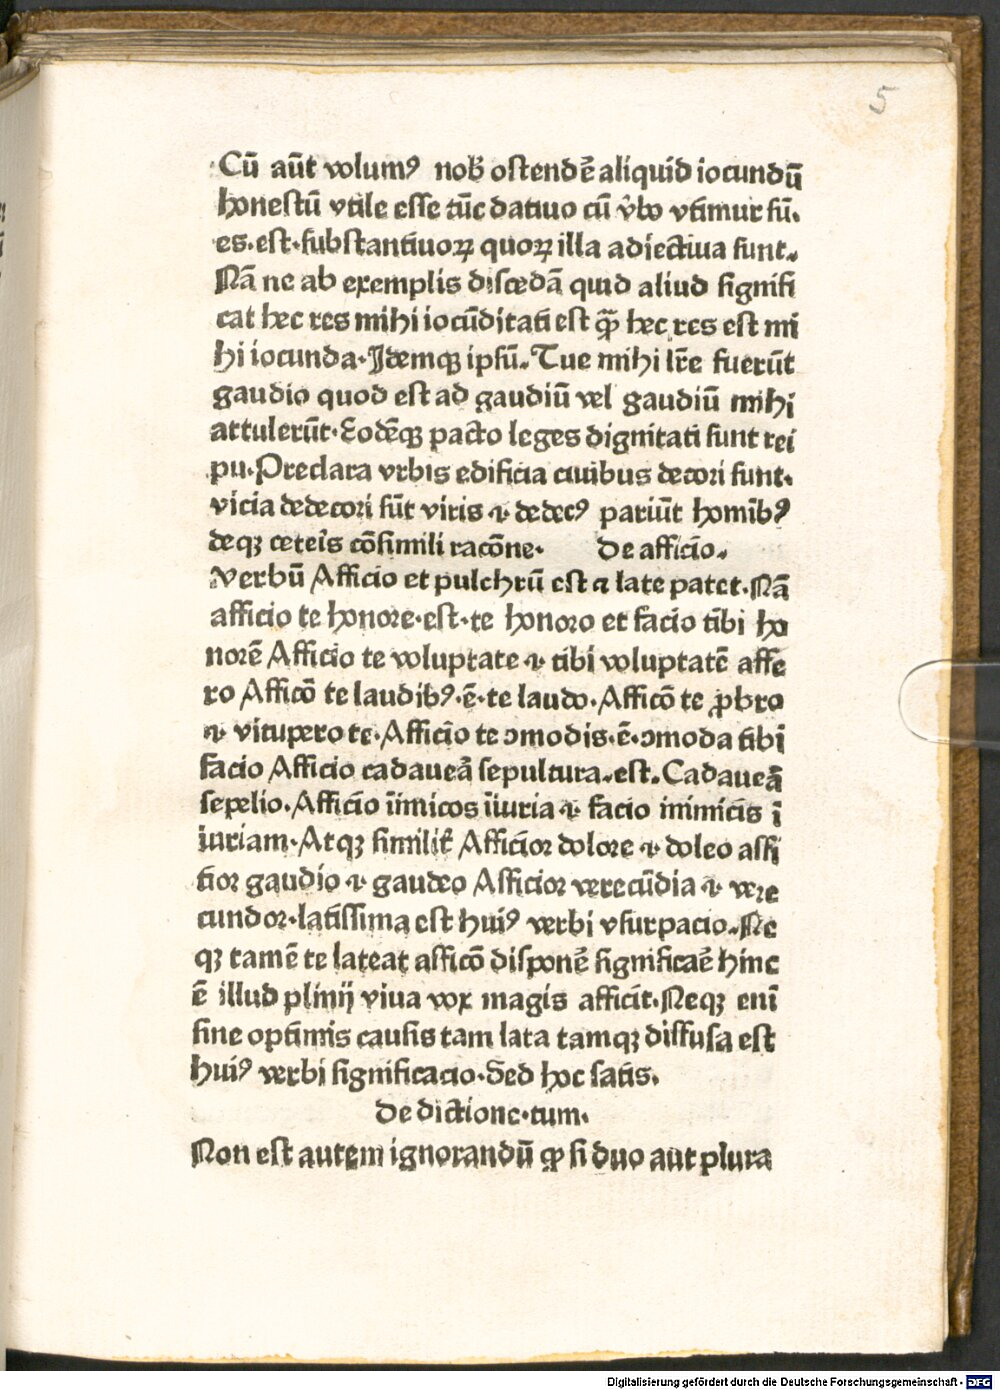 5
Cū aūt volumꝰ nob̄ ostendē aliquid iocundū
honestū vtile esse tūc datiuo cū v̄bo vtimur sū.
es.est.substantiuoꝝ quoꝝ illa adiectiua sunt.
Nā ne ab exemplis discedā quid aliud signifi
cat hec res mihi iocūditati est ꝙ̄ hec res est mi
hi iocunda.Idemqꝫ ipsū.Tue mihi lr̄e fuerūt
gaudio quod est ad gaudiū vel gaudiū mihi
attulerūt.Eodēqꝫ pacto leges dignitati sunt rei
pu.Preclara vrbis edificia ciuibus decori sunt.
vicia dedecori sūt viris .i. dedecꝰ pariūt homībꝰ
deqꝫ ceteīs cōsimili racōne. De afficio.
Verbū Afficio et pulchrū est ⁊ late patet.Nā
afficio te honore.est.te honoro et facio tibi ho
norē Afficio te voluptate .i. tibi voluptatē affe
ro Afficō te laudibꝰ.ē.te laudo.Afficō te ꝓbro
.i. vitupero te.Afficio te ꝯmodis.ē.ꝯmoda tibi
facio Afficio cadaueā sepultura.est.Cadaueā
sepelio.Afficio īimicos īiuria .i. facio inimicis ī
iuriam.Atqꝫ similit̄ Afficior dolore .i. doleo affi
tior gaudio .i. gaudeo Afficior verecūdia .i. vere
cundor.latissima est huiꝰ verbi vsurpacio.Ne
qꝫ tamē te lateat afficō disponē significaē hinc
ē illud plinij viua vox magis afficit.Neqꝫ enī
sine optimis causis tam lata tamqꝫ diffusa est
huiꝰ verbi significacio.Sed hoc satis.
De dictione.tum.
Non est autem ignorandū ꝙ si duo aut plura
Digitalisierung gefördert durch die Deutsche Forschungsgemeinschaft - DFG